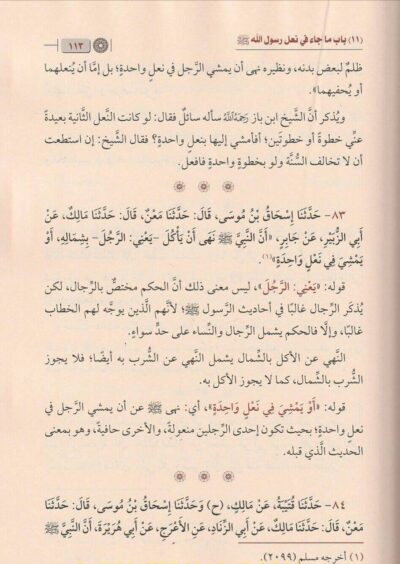 (١١) باب ما جاء في نعل رسول الله ﷺ
١١٣
ظلمٌ لبعض بدنه، ونظيره نهى أن يمشي الرَّجل في نعلٍ واحدةٍ؛ بل إمَّا أن يُنعلهما
أو يُحفيهما».
ويُذكر أنَّ الشَّيخ ابن باز رَحِمَهُ ٱللَّهُ سأله سائلٌ فقال: لو كانت النَّعل الثَّانية بعيدةً
عنِّي خطوةً أو خطوتَين؛ أفأمشي إليها بنعلٍ واحدةٍ؟ فقال الشَّيخ: إن استطعت
أن لا تخالف السُّنَّة ولو بخطوةٍ واحدةٍ فافعل.
٨٣- حَدَّثَنَا إِسْحَاقُ بْنُ مُوسَى، قَالَ: حَدَّثَنَا مَعْنٌ، قَالَ: حَدَّثَنَا مَالِكٌ، عَنْ
أَبِي الزُّبَيْرِ، عَنْ جَابِرٍ، «أَنَّ النَّبِيَّ ﷺ نَهَى أَنْ يَأْكُلَ -يَعْنِي: الرَّجُلَ- بِشِمَالِهِ، أَوْ
يَمْشِيَ فِي نَعْلٍ وَاحِدَةٍ»(١).
قوله: «يَعْنِي: الرَّجُلَ»، ليس معنى ذلك أنَّ الحكم مختصٌّ بالرِّجال، لكن
يُذكَر الرِّجال غالبًا في أحاديث الرَّسول ﷺ؛ لأنَّهم الَّذين يوجَّه لهم الخطاب
غالبًا، وإلَّا فالحكم يشمل الرِّجال والنِّساء على حدٍّ سواءٍ.
النَّهي عن الأكل بالشِّمال يشمل النَّهي عن الشُّرب به أيضًا؛ فلا يجوز
الشُّرب بالشِّمال، كما لا يجوز الأكل به.
قوله: «أَوْ يَمْشِيَ فِي نَعْلٍ وَاحِدَةٍ»، أي: نهى ﷺ عن أن يمشي الرَّجل في
نعلٍ واحدةٍ؛ بحيث تكون إحدى الرِّجلين منعولةً، والأخرى حافيةً، وهو بمعنى
الحديث الَّذي قبله.
٨٤- حَدَّثَنَا قُتَيْبَةُ، عَنْ مَالِكٍ، (ح) وَحَدَّثَنَا إِسْحَاقُ بْنُ مُوسَى، قَالَ: حَدَّثَنَا
مَعْنٌ، قَالَ: حَدَّثَنَا مَالِكٌ، عَنْ أَبِي الزِّنَادِ، عَنِ الْأَعْرَجِ، عَنْ أَبِي هُرَيْرَةَ، أَنَّ النَّبِيَّ ﷺ
(١) أخرجه مسلم (٢٠٩٩).